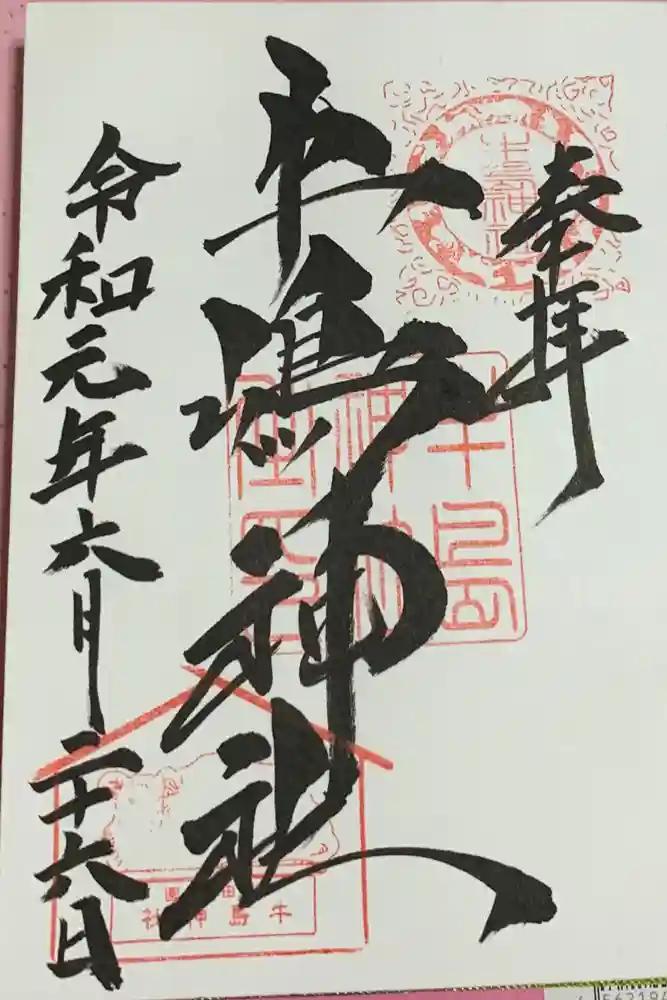 奉拝
牛嶋神社
令和元年六月二十六日
牛島神社